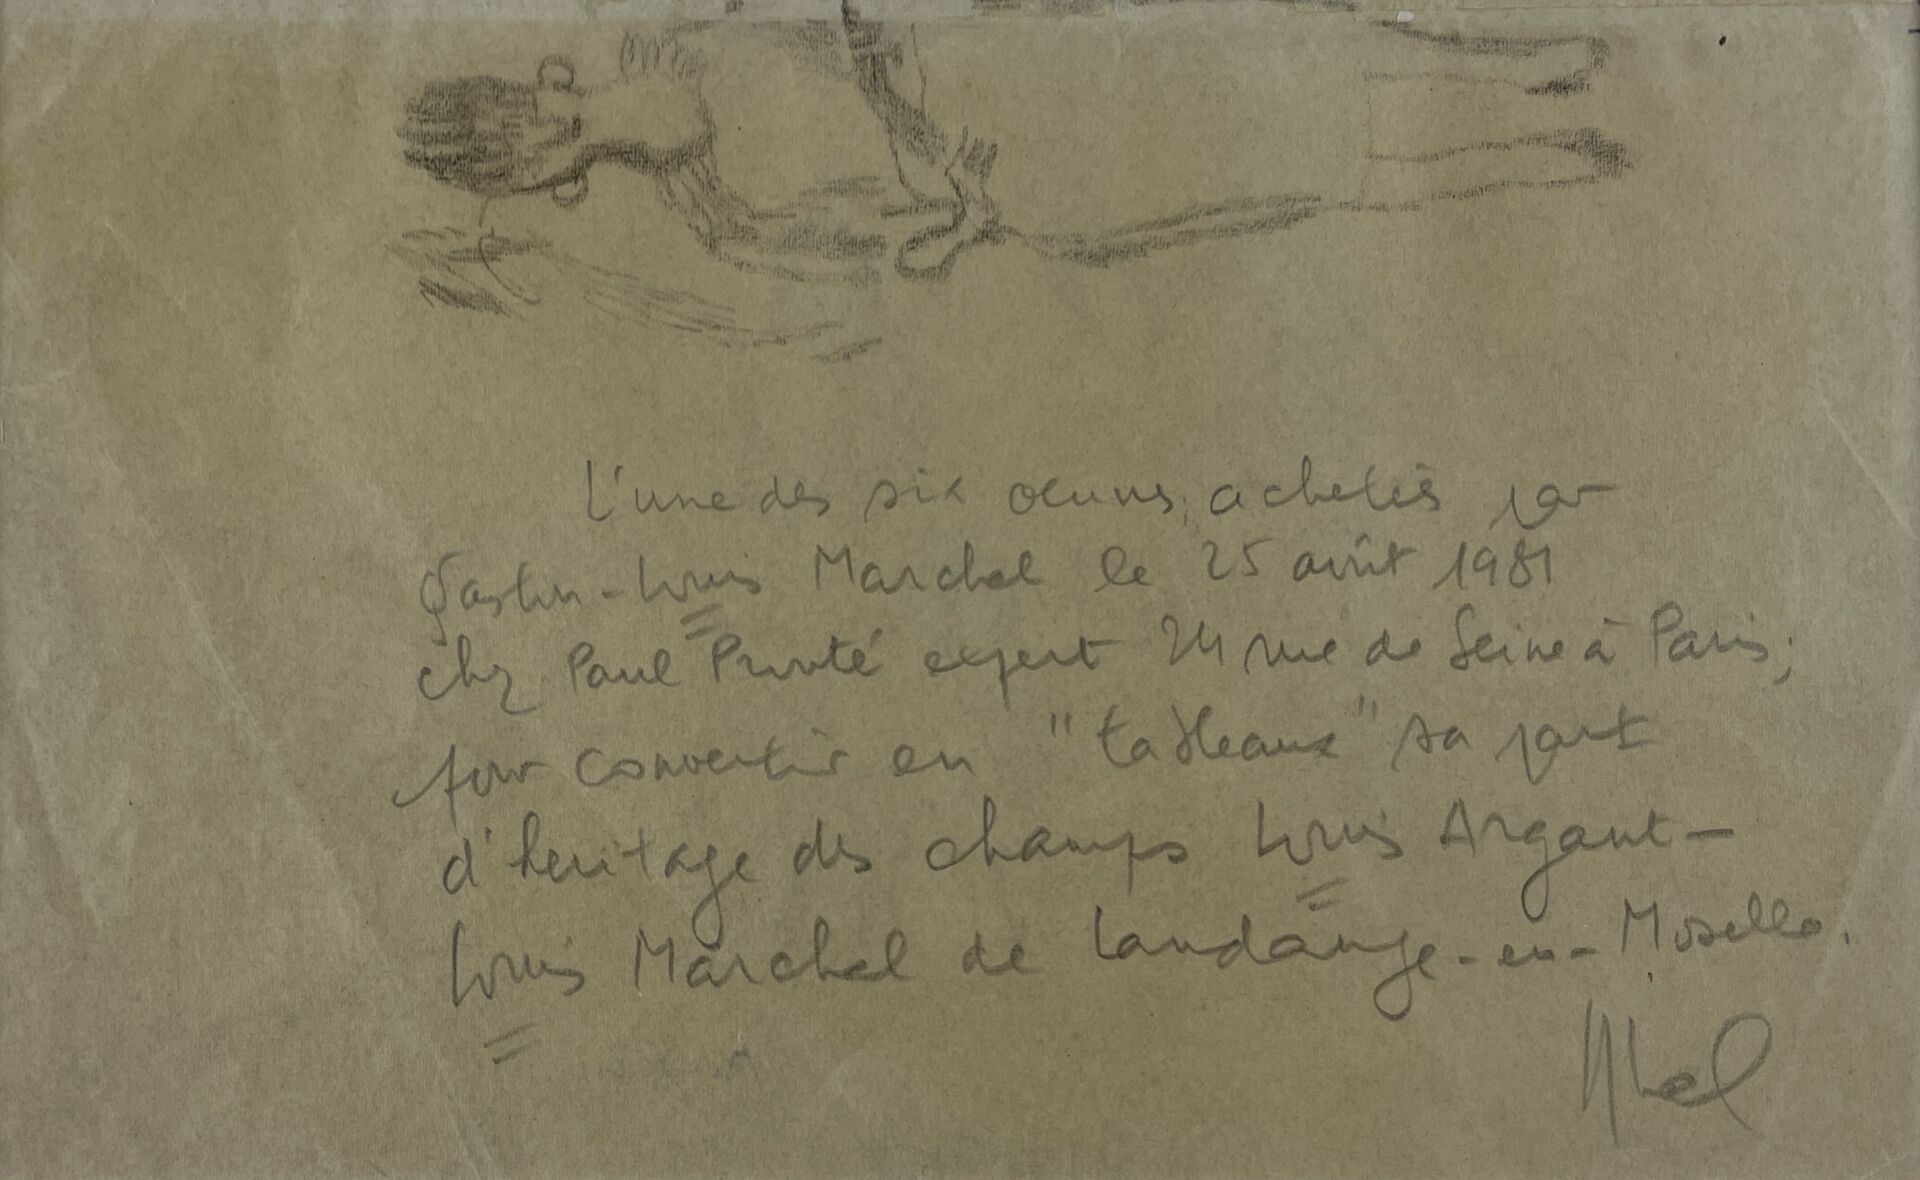 L'une des six oeuvres achetées par
Gaston-Louis Marchal le 25 août 1981
chez Paul Prouté expert 74 rue de Seine à Paris;
pour convertir en "tableaux" sa part
d'heritage des champs Louis Argant-
Louis Marchal de Landange-en-Moselle.